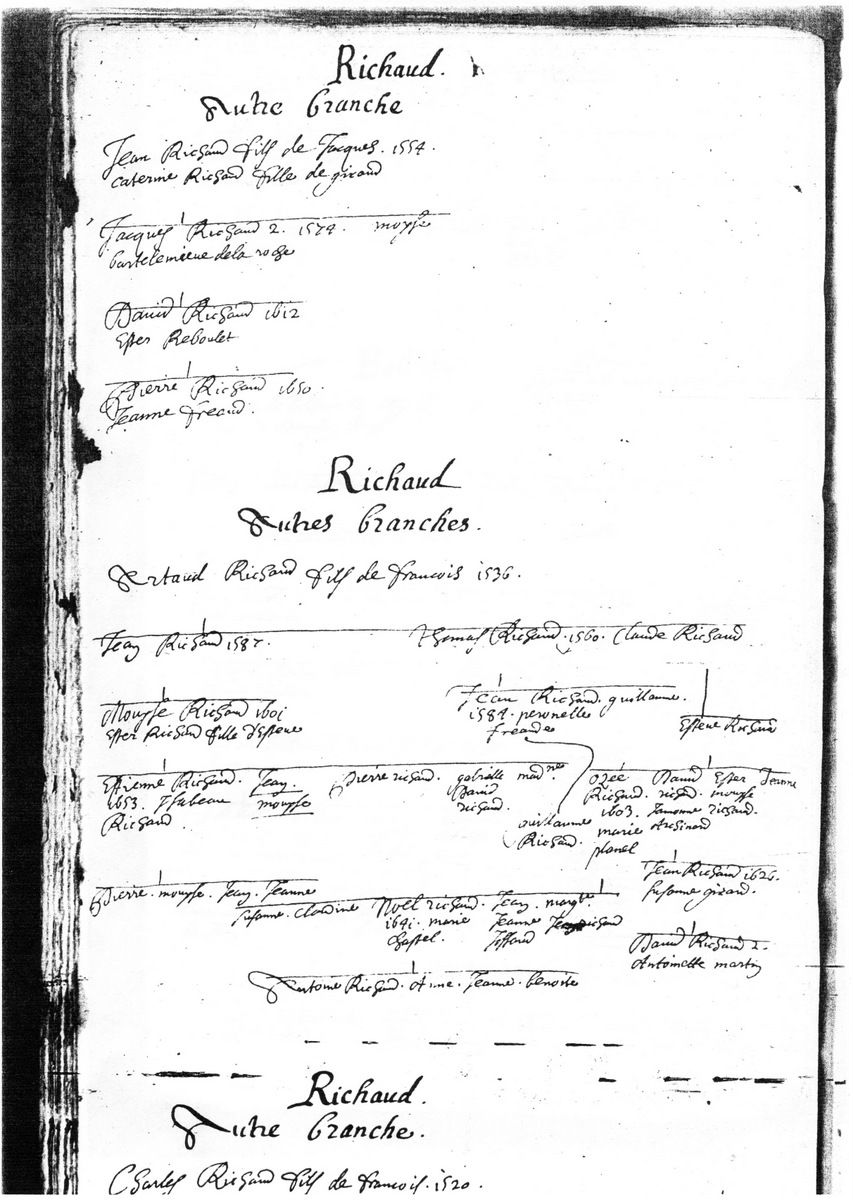 Richaud.
Autre branche
Jean Richaud fils de Jacques. 1554.
Caterine Richaud fille de giraud
Jacques Richaud 2. 1574. moyse
bartelemieue dela roche
David Richaud 1612
Ester Reboulet
Pierre Richaud 1650.
Jeanne freaud.
Richaud
Autres branches.
Artaud Richaud fils de francois 1536.
Jean Richaud 1587. Thomas Richaud. 1560. Claude Richaud
Mouyse Richaud 1601
Ester Richaud fille d'Esteve
Jean Richaud. guillaume.
1584. peronelle
freaude
Esteve Richaud
Estienne Richaud. Jean.
1653. Isabeau mouyse
Richaud
Pierre richaud. gabrielle mad.ne
David
richaud.
ozée David Ester Jeanne
Richaud. richaud. mouyse
1603. richaud.
marie
planel
guillaume
Richaud.
Jean Richaud 1626.
susanne giraud.
Pierre. mouyse. Jean. Jeanne
susanne. claudine
Noel richaud. Jean. margte
1641. marie Jeanne richaud
chastel.
David Richaud 2.
Antoinette martin
Antoine Richaud. Anne. Jeanne. benoite
Richaud.
Autre branche.
Charles Richaud fils de francois. 1520.